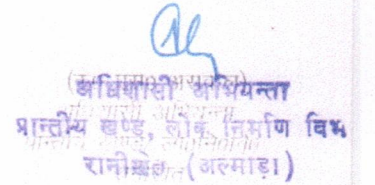 अधिशासी अभियन्ता
प्रान्तीय खण्ड, लोक निर्माण विभ
रानीखेत (अल्मोड़ा)